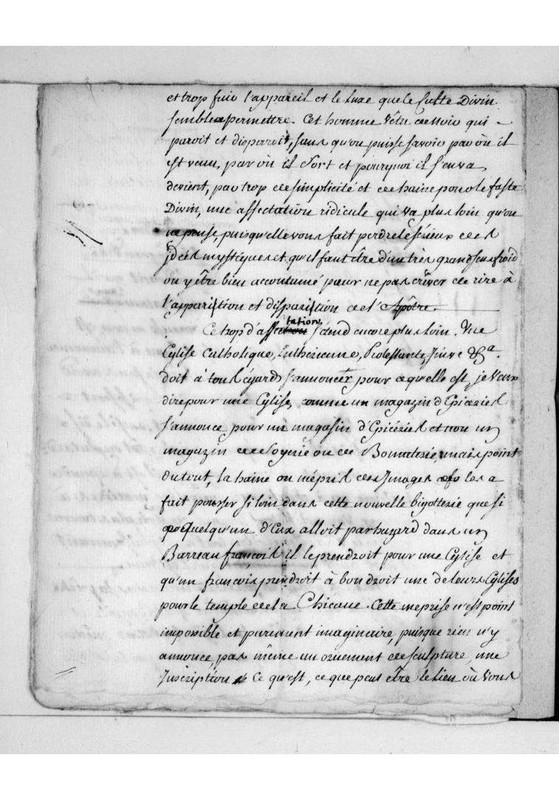 et trop fuir l'appareil et le luxe que le Culte Divin
semble permettre. Cet homme vêtu de noir qui
paroit et disparoit, sans qu'on puisse savoir par où il
est venu, par où il sort et pourquoi il s'en va
devient, par trop de simplicité et de haine pour le faste
Divin, une affectation ridicule qui va plus loin qu'on
ne pense, puisqu'elle vous fait perdre le sérieux de ces
idées mystiques et qu'il faut être d'un très grand sens froid
ou y être bien accoutumé pour ne pas crever de rire à
l'apparition et disparition de l'Apôtre.
Ce trop d'affectation s'étend encore plus loin. Une
Eglise Catholique, Luthérienne, Protestante, Juive &ca.
doit à tous égards s'annoncer pour ce qu'elle est, je veux
dire pour une Eglise, comme un magazin d'Epiceries
s'annonce pour un magasin d'Epiceries et non un
magazin de Soyerie ou de Bonneterie, mais point
du tout, la haine ou mépris des Images les a
fait pousser si loin dans cette nouvelle bigotterie que si
quelqu'un d'Eux alloit par hazard dans un
Barreau françois il le prendroit pour une Eglise et
qu'un françois prendroit à bon droit une de leurs Eglises
pour le temple de la Chicane. Cette meprise n'est point
impossible et purement imaginaire, puisque rien n'y
annonce, pas même un ornement de sculpture une
Inscription Ce qu'est, ce que peut être le lieu où vous